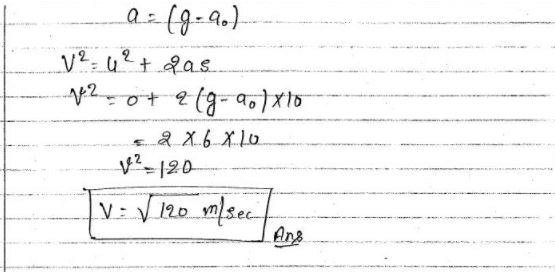 a = (g - a₀)
V² = u² + 2as
V² = 0 + 2(g - a₀) × 10
= 2 × 6 × 10
V² = 120
V = √120 m/sec
Ans